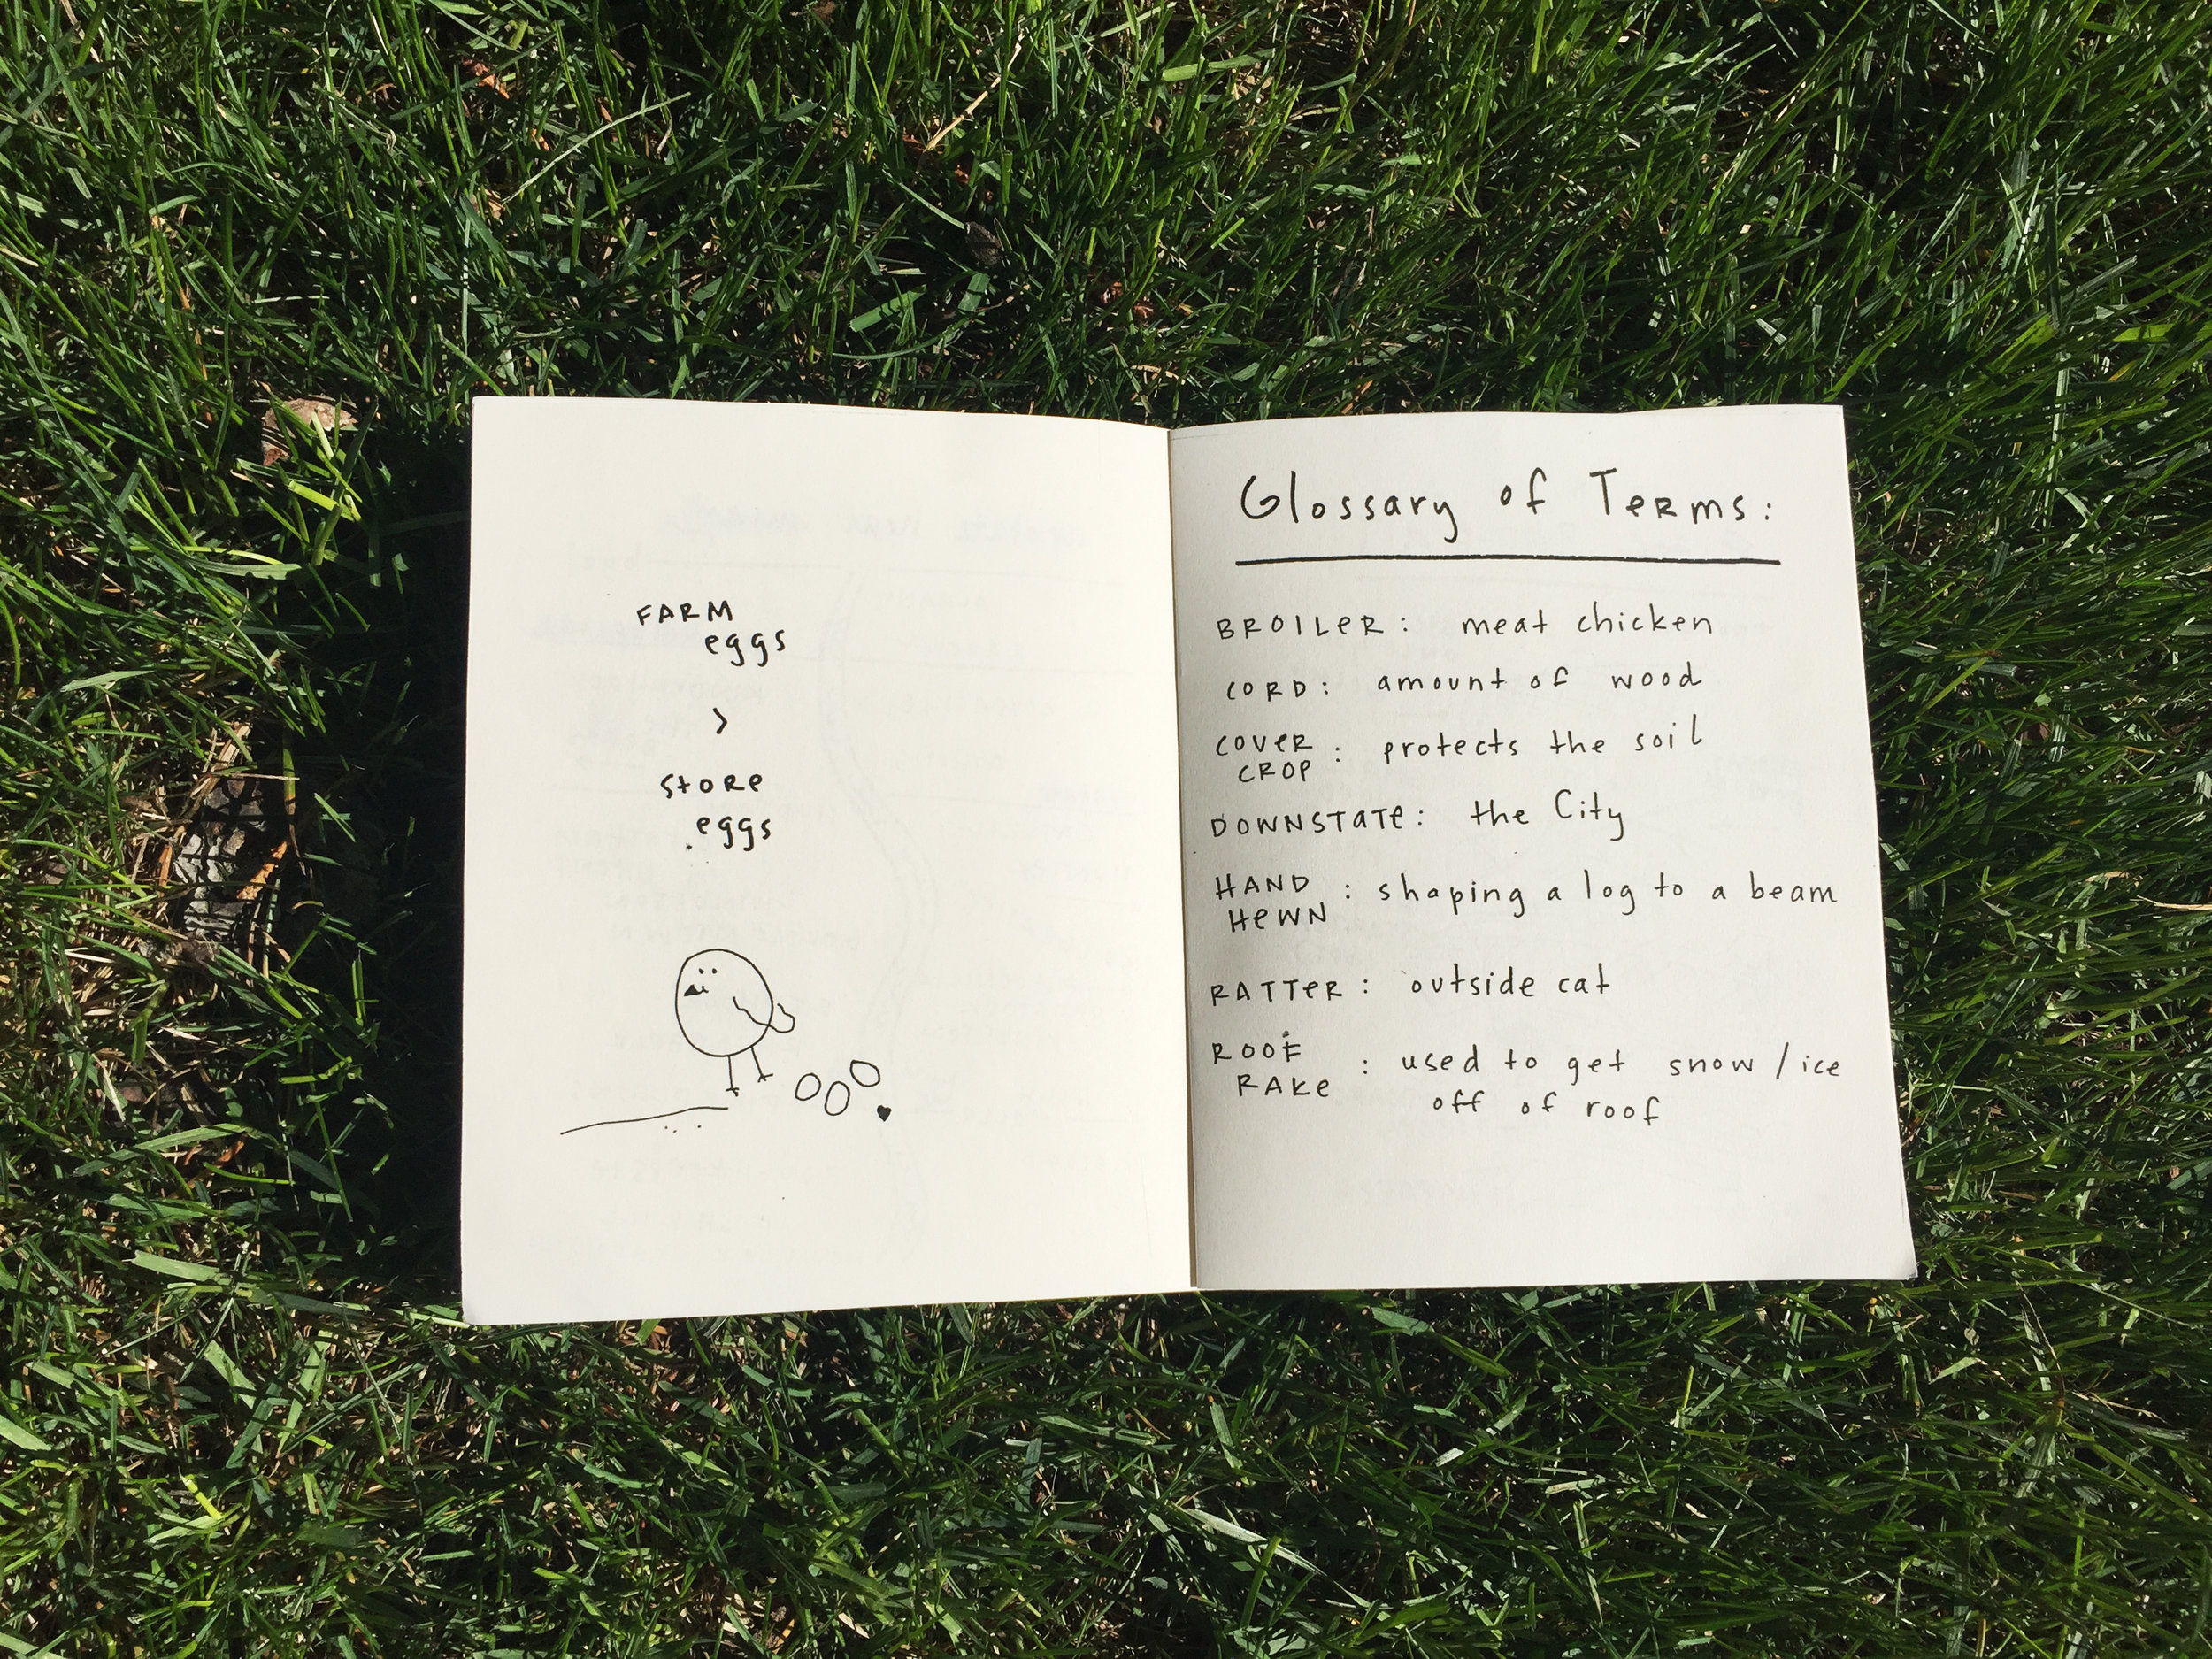 FARM
eggs
>
Store
eggs
Glossary of Terms:
BROILER: meat chicken
CORD: amount of wood
COVER CROP: protects the soil
DOWNSTATE: the City
HAND HEWN: shaping a log to a beam
RATTER: outside cat
ROOF RAKE: used to get snow/ice
off of roof